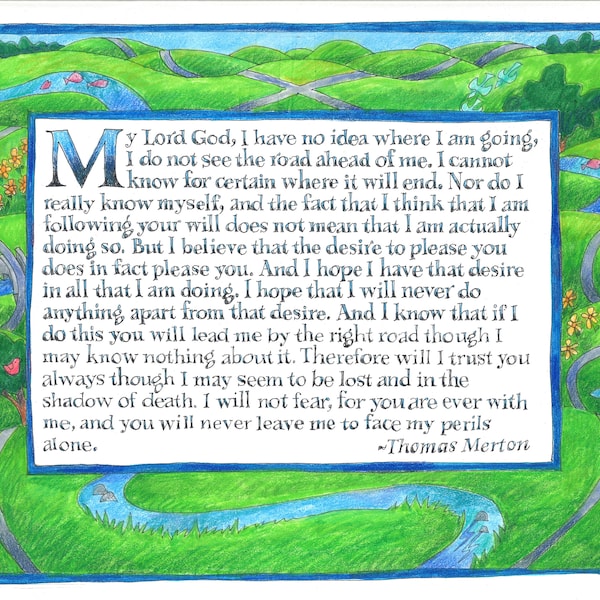 My Lord God, I have no idea where I am going,
I do not see the road ahead of me. I cannot
know for certain where it will end. Nor do I
really know myself, and the fact that I think that I am
following your will does not mean that I am actually
doing so. But I believe that the desire to please you
does in fact please you. And I hope I have that desire
in all that I am doing. I hope that I will never do
anything apart from that desire. And I know that if I
do this you will lead me by the right road though I
may know nothing about it. Therefore will I trust you
always though I may seem to be lost and in the
shadow of death. I will not fear, for you are ever with
me, and you will never leave me to face my perils
alone. ~Thomas Merton